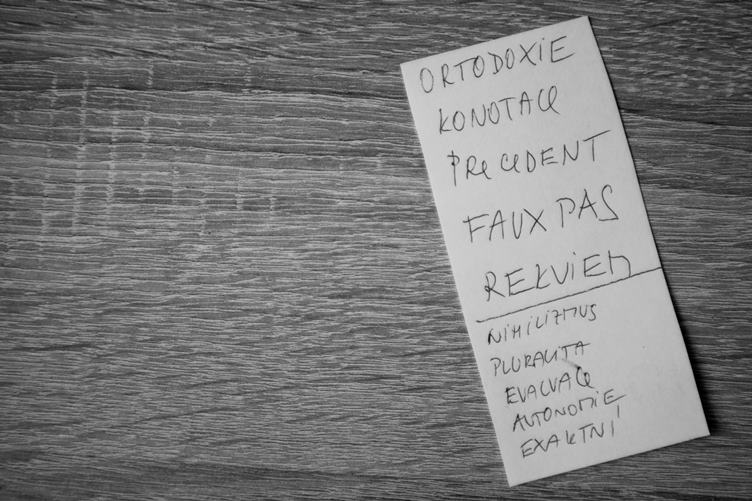 ORTODOXiE
KONOTACE
PRECEDENT
FAUX PAS
REKViEM
NiHiLiZMUS
PLURALiTA
EVALVACE
AUTONOMiE
EXAKTNÍ